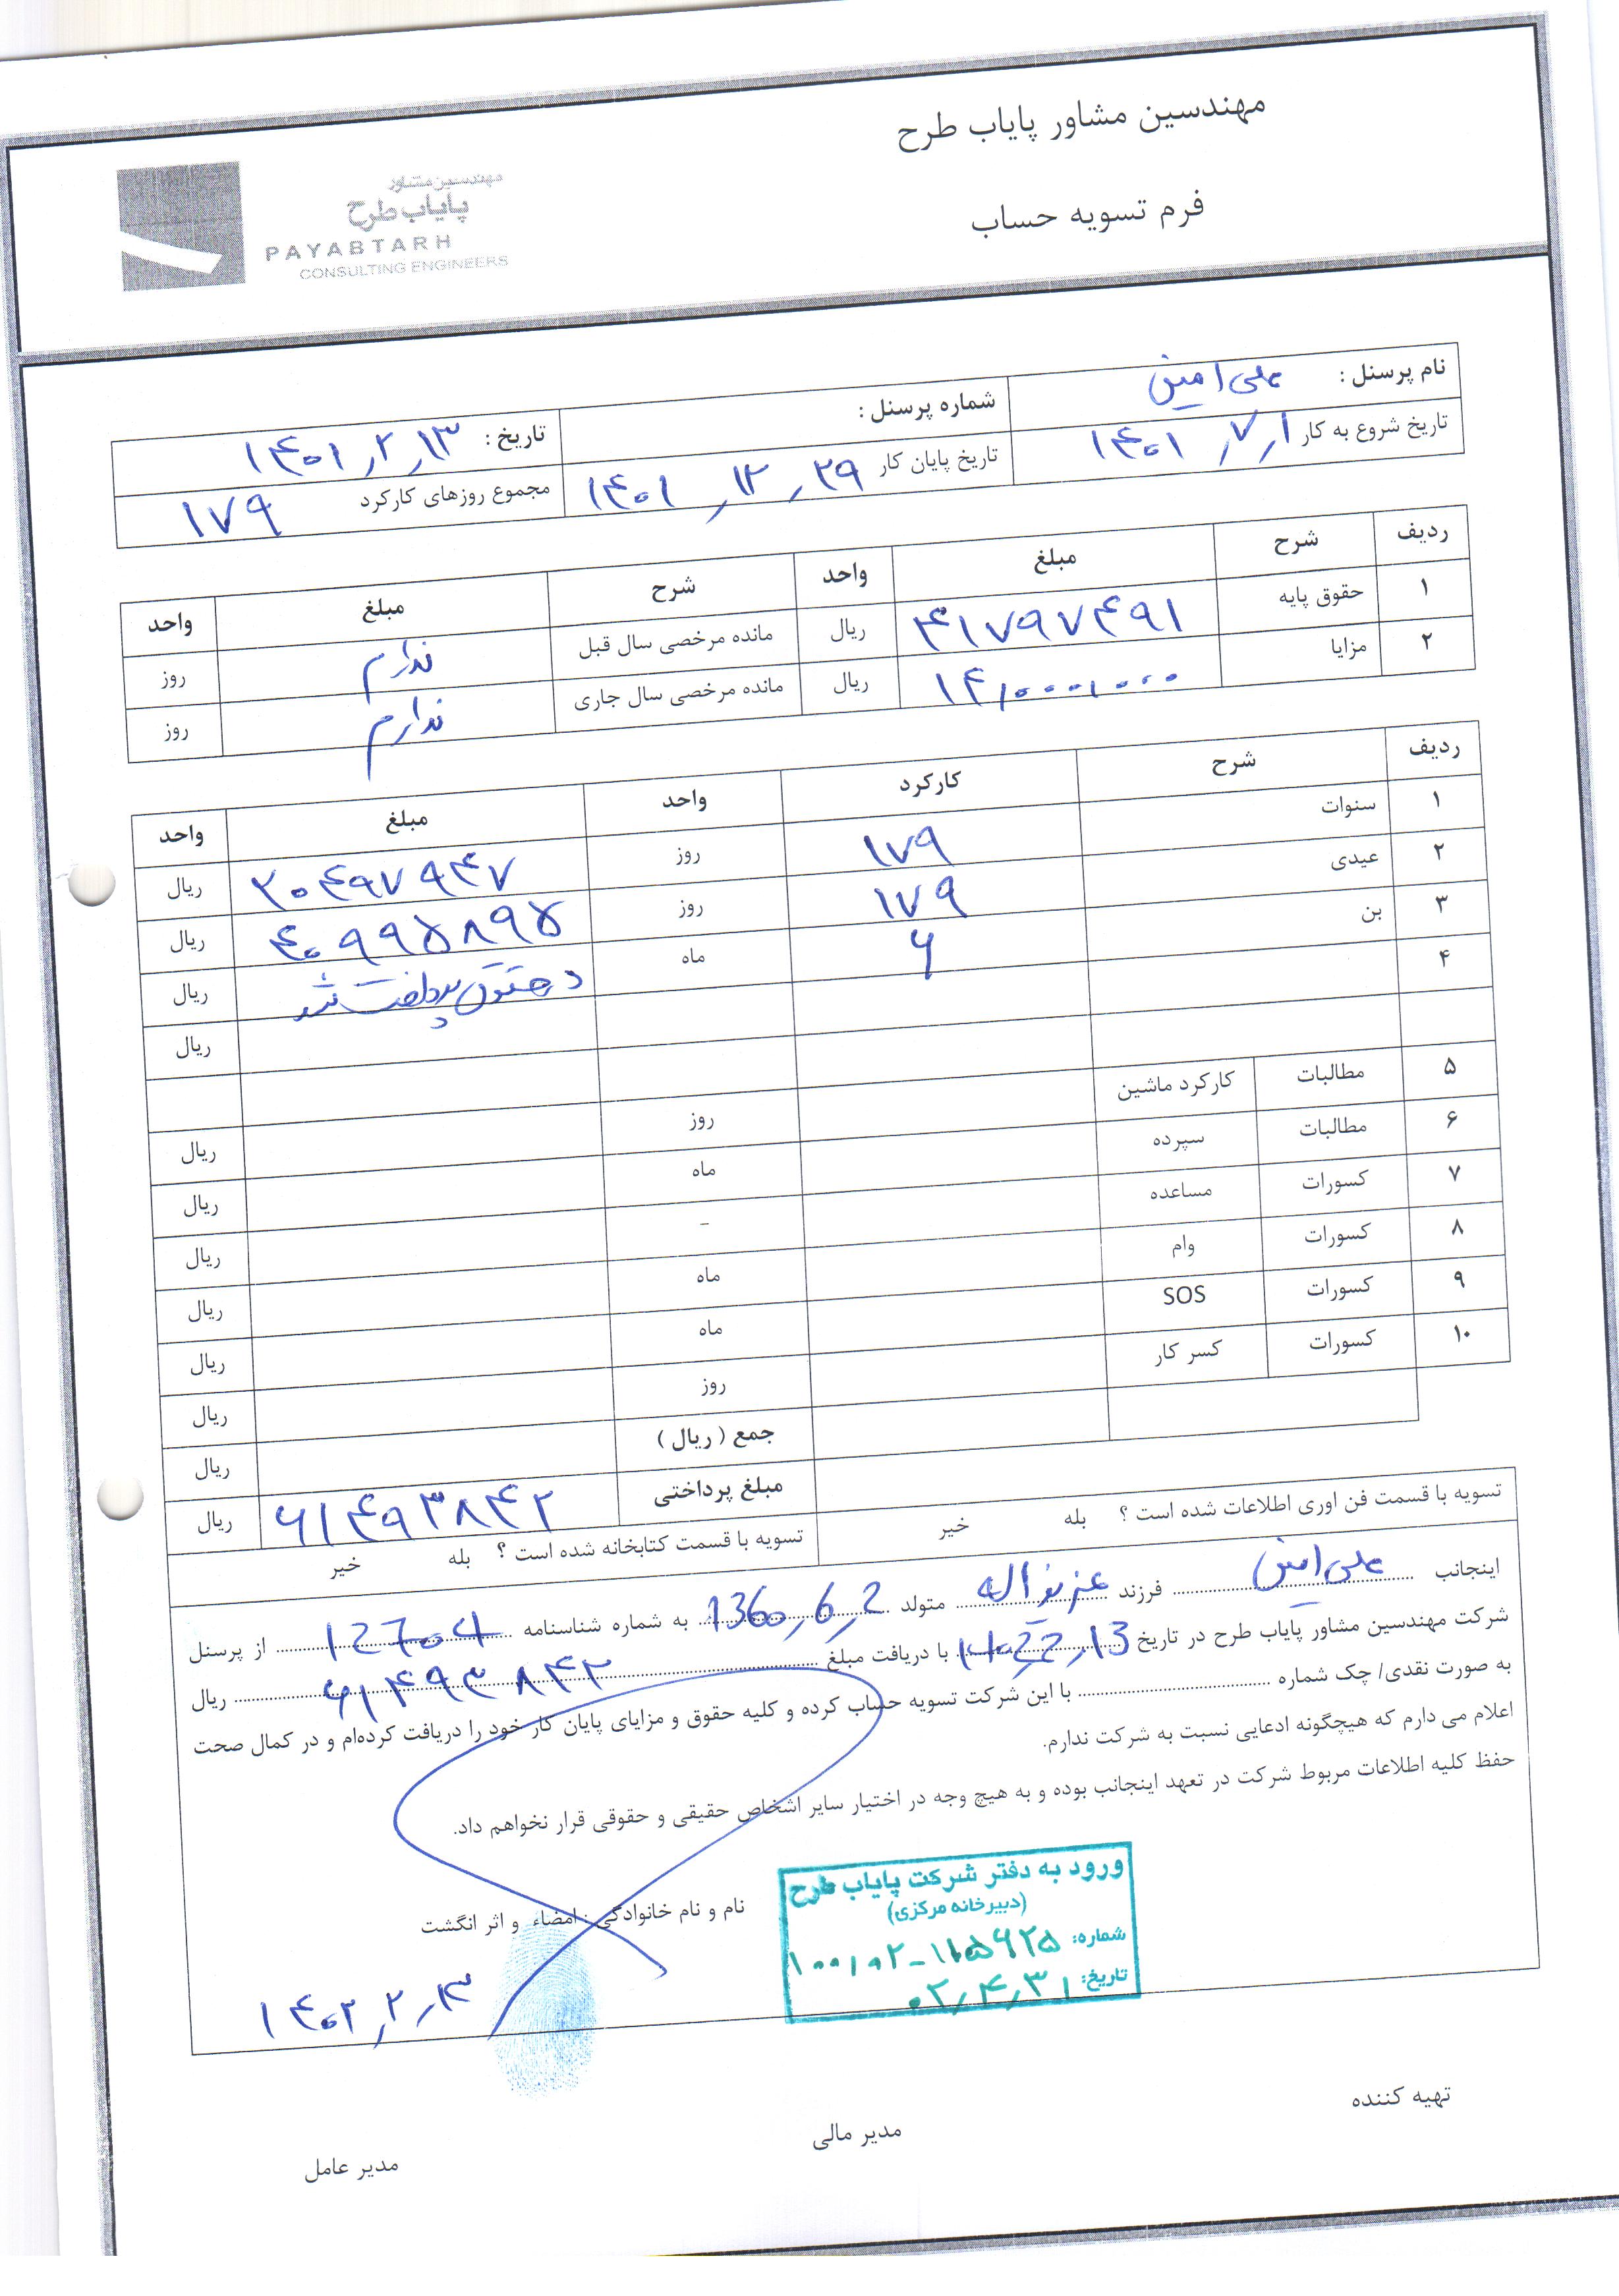 مهندسین مشاور پایاب طرح
فرم تسویه حساب
مهندسین مشاور
پایاب طرح
PAYABTARH
CONSULTING ENGINEERS
نام پرسنل : علی امینی شماره پرسنل : تاریخ : ۱۴۰۱٫۲٫۱۳
تاریخ شروع به کار ۱۴۰۱٫۷٫۱ تاریخ پایان کار ۱۴۰۱٫۱۲٫۲۹ مجموع روزهای کارکرد ۱۷۹
ردیف شرح مبلغ واحد شرح مبلغ واحد
۱ حقوق پایه ۴۱۷۹۷۴۹۱ ریال مانده مرخصی سال قبل ندارم روز
۲ مزایا ۱۴٫۰۰۰٫۰۰۰ ریال مانده مرخصی سال جاری ندارم روز
ردیف شرح کارکرد واحد مبلغ واحد
۱ سنوات ۱۷۹ روز ۲۰۴۹۷۹۴۷ ریال
۲ عیدی ۱۷۹ روز ۴۰۹۹۵۸۹۵ ریال
۳ بن ۶ ماه در حقوق پرداخت شد ریال
۴ ریال
۵ مطالبات کارکرد ماشین روز ریال
۶ مطالبات سپرده ماه ریال
۷ کسورات مساعده - ریال
۸ کسورات وام ماه ریال
۹ کسورات SOS ماه ریال
۱۰ کسورات کسر کار روز ریال
جمع ( ریال ) ریال
مبلغ پرداختی ۶۱۴۹۳۸۴۲ ریال
تسویه با قسمت فن اوری اطلاعات شده است ؟ بله خیر تسویه با قسمت کتابخانه شده است ؟ بله خیر
اینجانب علی امینی فرزند عزیزاله متولد 1360٫6٫2 به شماره شناسنامه از پرسنل
شرکت مهندسین مشاور پایاب طرح در تاریخ با دریافت مبلغ ۶۱۴۹۳۸۴۲ ریال
به صورت نقدی/ چک شماره با این شرکت تسویه حساب کرده و کلیه حقوق و مزایای پایان کار خود را دریافت کرده‌ام و در کمال صحت
اعلام می دارم که هیچگونه ادعایی نسبت به شرکت ندارم.
حفظ کلیه اطلاعات مربوط شرکت در تعهد اینجانب بوده و به هیچ وجه در اختیار سایر اشخاص حقیقی و حقوقی قرار نخواهم داد.
ورود به دفتر شرکت پایاب طرح
(دبیرخانه مرکزی)
شماره: ۱۰۰٫۰۲-۱۱۵۶۲۵
تاریخ: ۰۲٫۴٫۳۱
نام و نام خانوادگی : امضاء و اثر انگشت
۱۴۰۲٫۲٫۱۳
تهیه کننده
مدیر مالی
مدیر عامل